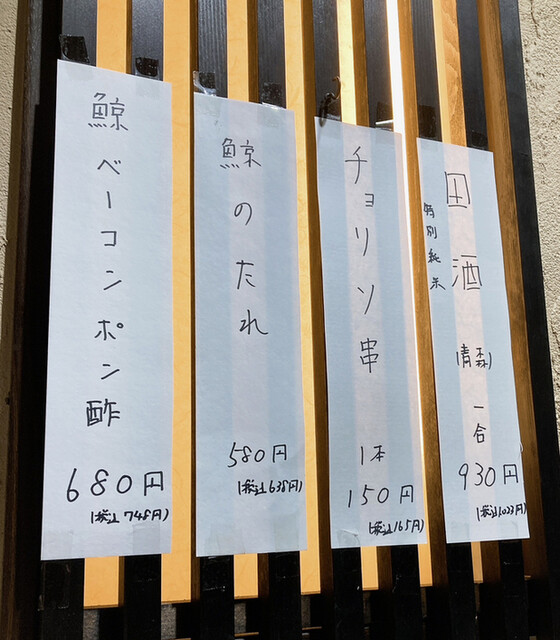 田酒
特別純米
(青森)
一合
930円
(税込1,023円)
チョリソ串
1本
150円
(税込165円)
鯨のたれ
580円
(税込638円)
鯨ベーコンポン酢
680円
(税込748円)